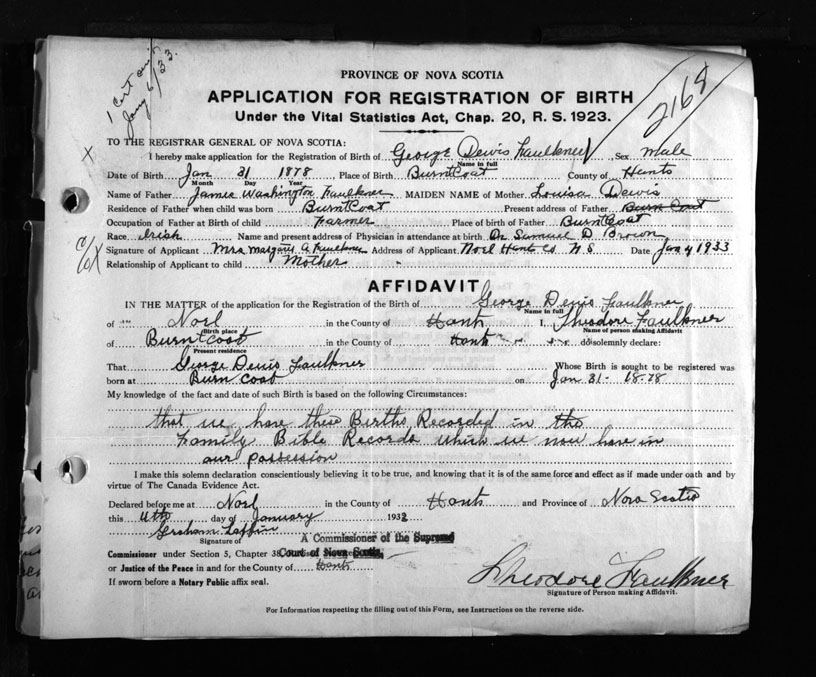 1 Cert
Jany 6/33.
2168
PROVINCE OF NOVA SCOTIA
APPLICATION FOR REGISTRATION OF BIRTH
Under the Vital Statistics Act, Chap. 20, R. S. 1923.
TO THE REGISTRAR GENERAL OF NOVA SCOTIA:
X
I hereby make application for the Registration of Birth of George Dewis Faulkner, Sex Male
Name in full
Date of Birth Jan 31 1878 Place of Birth Burnt Coat County of Hants
Month Day Year
Name of Father James Washington Faulkner MAIDEN NAME of Mother Louisa Dewis
Residence of Father when child was born Burnt Coat Present address of Father Burn Coat
Occupation of Father at Birth of child Farmer Place of birth of Father Burnt Coat
Race Irish Name and present address of Physician in attendance at birth Dr Samuel D Brown
Signature of Applicant Mrs Margaret A Faulkner Address of Applicant Noel Hants Co N S Date Jan 4 1933
Relationship of Applicant to child Mother
AFFIDAVIT
IN THE MATTER of the application for the Registration of the Birth of George Dewis Faulkner
Name in full
of Noel in the County of Hants I, Theodore Faulkner
Birth place Name of person making Affidavit
of Burnt Coat in the County of Hants do solemnly declare:
Present residence
That George Dewis Faulkner Whose Birth is sought to be registered was
born at Burn Coat on Jan 31- 18-78
My knowledge of the fact and date of such Birth is based on the following Circumstances:
that we have these Births Recorded in the
Family Bible Records which we now have in
our possession
I make this solemn declaration conscientiously believing it to be true, and knowing that it is of the same force and effect as if made under oath and by
virtue of The Canada Evidence Act.
Declared before me at Noel in the County of Hants and Province of Nova Scotia
this 4th day of January 1933
Graham Laffin
Signature of
A Commissioner of the Supreme
Commissioner under Section 5, Chapter 38, Court of Nova Scotia,
or Justice of the Peace in and for the County of Hants
If sworn before a Notary Public affix seal.
Theodore Faulkner
Signature of Person making Affidavit.
For Information respecting the filling out of this Form, see Instructions on the reverse side.